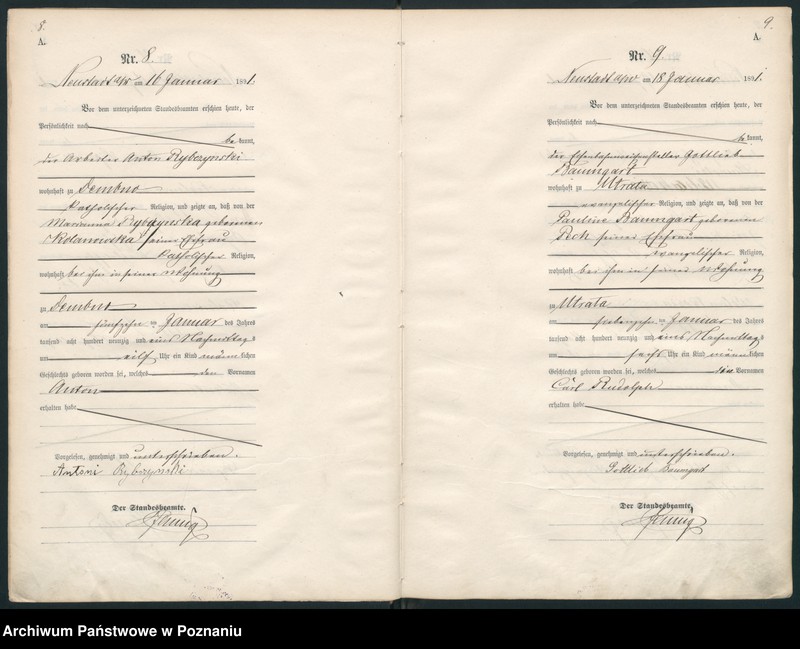 8.
A.
Nr. 8.
Neustadt a/W am 16 Januar 1891.
Vor dem unterzeichneten Standesbeamten erschien heute, der
Persönlichkeit nach
be kannt,
der Arbeiter Anton Rybczynski
wohnhaft zu Dembno
katholischer Religion, und zeigte an, daß von der
Marianna Rybczynska geborenen
Skolanowska seiner Ehefrau
katholischer Religion,
wohnhaft bei ihm in seiner Wohnung
zu Dembno
am fünfzehn ten Januar des Jahres
tausend acht hundert neunzig und eins Nachmittags
um eilf Uhr ein Kind männlichen
Geschlechts geboren worden sei, welches den Vornamen
Anton
erhalten habe
Vorgelesen, genehmigt und unterschrieben.
Antoni Rybczynski
Der Standesbeamte.
9.
A.
Nr. 9.
Neustadt a/W am 18 Januar 1891.
Vor dem unterzeichneten Standesbeamten erschien heute, der
Persönlichkeit nach
be kannt,
der Gottlieb
Baumgart
wohnhaft zu Utrata
evangelischer Religion, und zeigte an, daß von der
Pauline Baumgart geborenen
Pech seiner Ehefrau
evangelischer Religion,
wohnhaft bei ihm in seiner Wohnung
zu Utrata
am siebenzehn ten Januar des Jahres
tausend acht hundert neunzig und eins Nachmittags
um sechs Uhr ein Kind männlichen
Geschlechts geboren worden sei, welches die Vornamen
Carl Rudolph
erhalten habe
Vorgelesen, genehmigt und unterschrieben.
Gottlieb Baumgard
Der Standesbeamte.
Archiwum Państwowe w Poznaniu